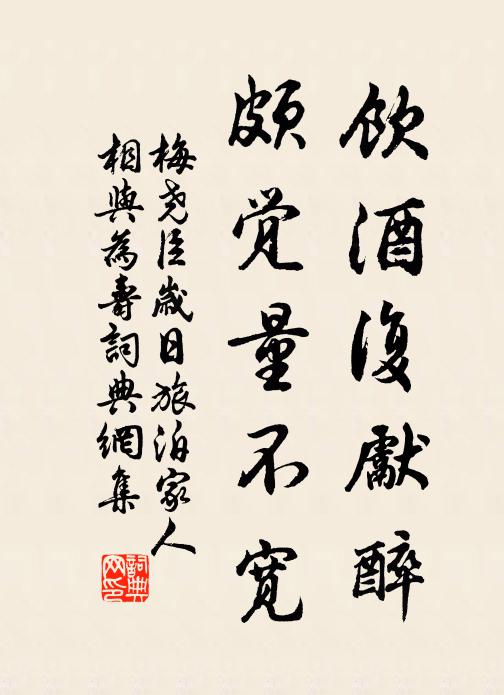 飲酒復獻醉
頗覚量不寬
梅堯臣歲日旅泊家人
相與為壽詞典網集
詞典
网印